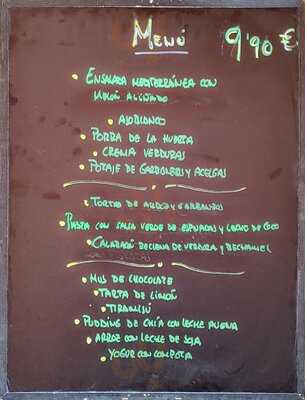 Menú 9'90 €
Ensalada mediterránea con
melón aliñado
Ajoblanco
Porra de la huerta
Crema verduras
Potaje de garbanzos y acelgas
Tortas de arroz y garbanzos
Pasta con salsa verde de espinacas y leche de coco
Calabacín rellena de verdura y bechamel
Mus de chocolate
Tarta de limón
Tiramisú
Pudding de chía con leche avena
Arroz con leche de soja
Yogur con compota